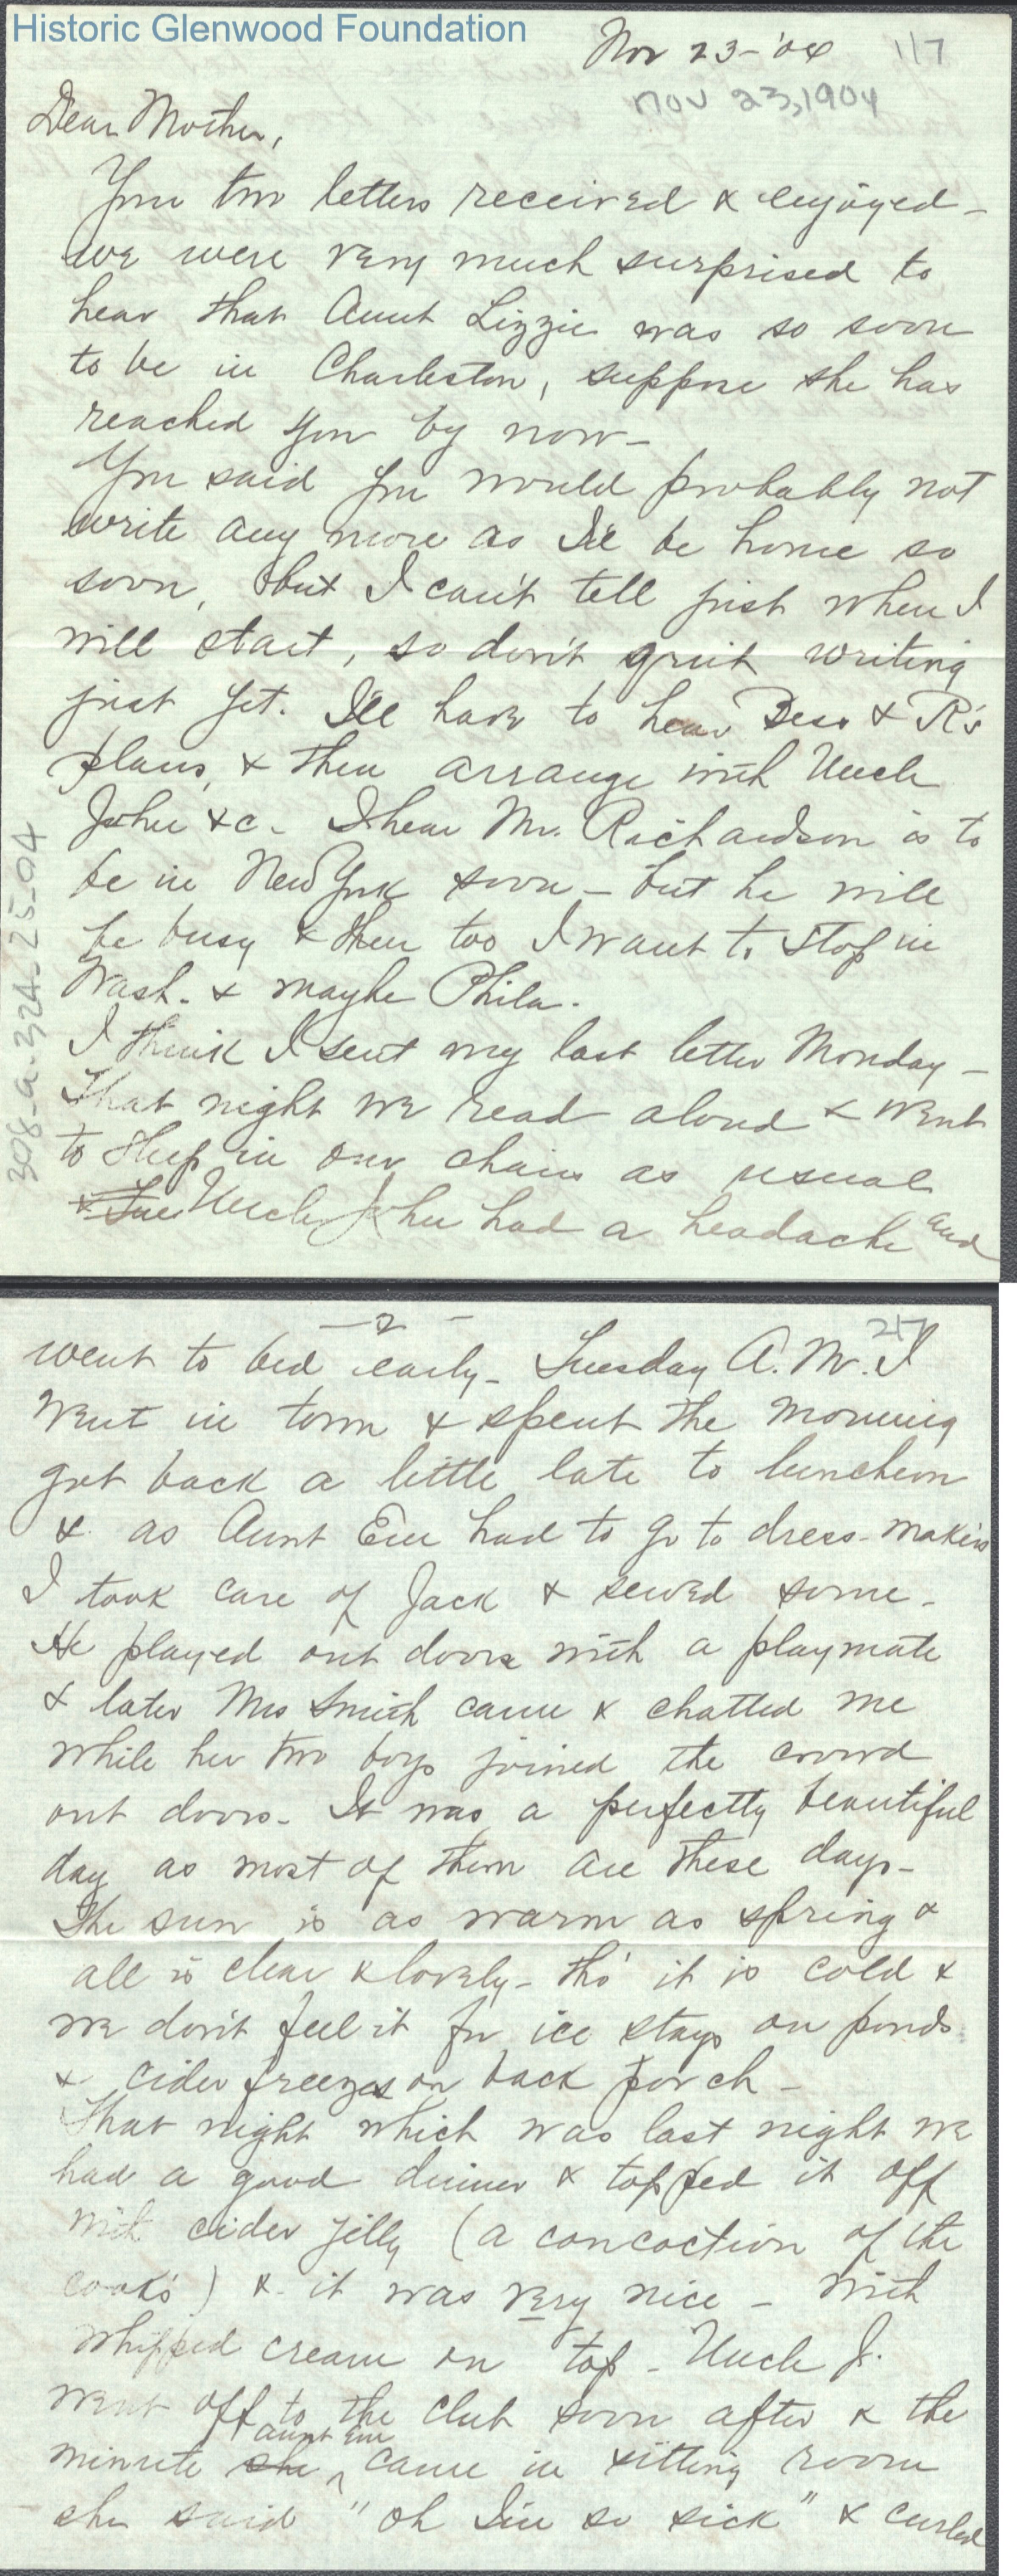 Historic Glenwood Foundation
Nov 23-'04 117
Nov 23, 1904
Dear Mother,
Your two letters received & enjoyed –
we were very much surprised to
hear that Aunt Lizzie was so soon
to be in Charleston, suppose she has
reached you by now –
You said you would probably not
write any more as I'll be home so
soon, but I can't tell just when I
will start, so don't quit writing
just yet. I'll have to hear Bess & R's
plans, & then arrange with Uncle
John &c. I hear Mr. Richardson is to
be in New York soon – but he will
be busy & then too I want to stop in
Wash. & maybe Phila.
I think I sent my last letter Monday –
That night we read aloud & went
to sleep in our chairs as usual
& Tue Uncle John had a headache and
308-a-324-25-04
– 2 –
went to bed early – Tuesday A.M. I
went in town & spent the morning
got back a little late to luncheon
& as Aunt Em had to go to dress-makers
I took care of Jack & sewed some –
He played out doors with a playmate
& later Mrs Smith came & chatted me
while her two boys joined the crowd
out doors – It was a perfectly beautiful
day as most of them are these days –
The sun is as warm as spring &
all is clear & lovely – tho' it is cold &
we don't feel it for ice stays on ponds
& cider freezes on back porch –
That night which was last night we
had a good dinner & topped it off
with cider jelly (a concoction of the
cook's) & it was very nice – with
whipped cream on top – Uncle J.
went off to the club soon after & the
minute she Aunt Em came in sitting room
she said "oh I'm so sick" & curled